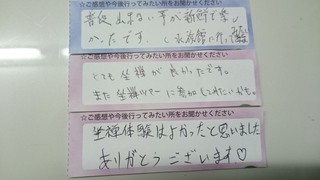 ☆ご感想や今後行ってみたい所をお聞かせください
普段出来ない事が新鮮で楽し
かったです。
☆ご感想や今後行ってみたい所をお聞かせください
とても坐禅が良かったです。
また坐禅ツアーに参加してみたいです。
☆ご感想や今後行ってみたい所をお聞かせください
坐禅体験はよかったと思いました
ありがとうございます♡